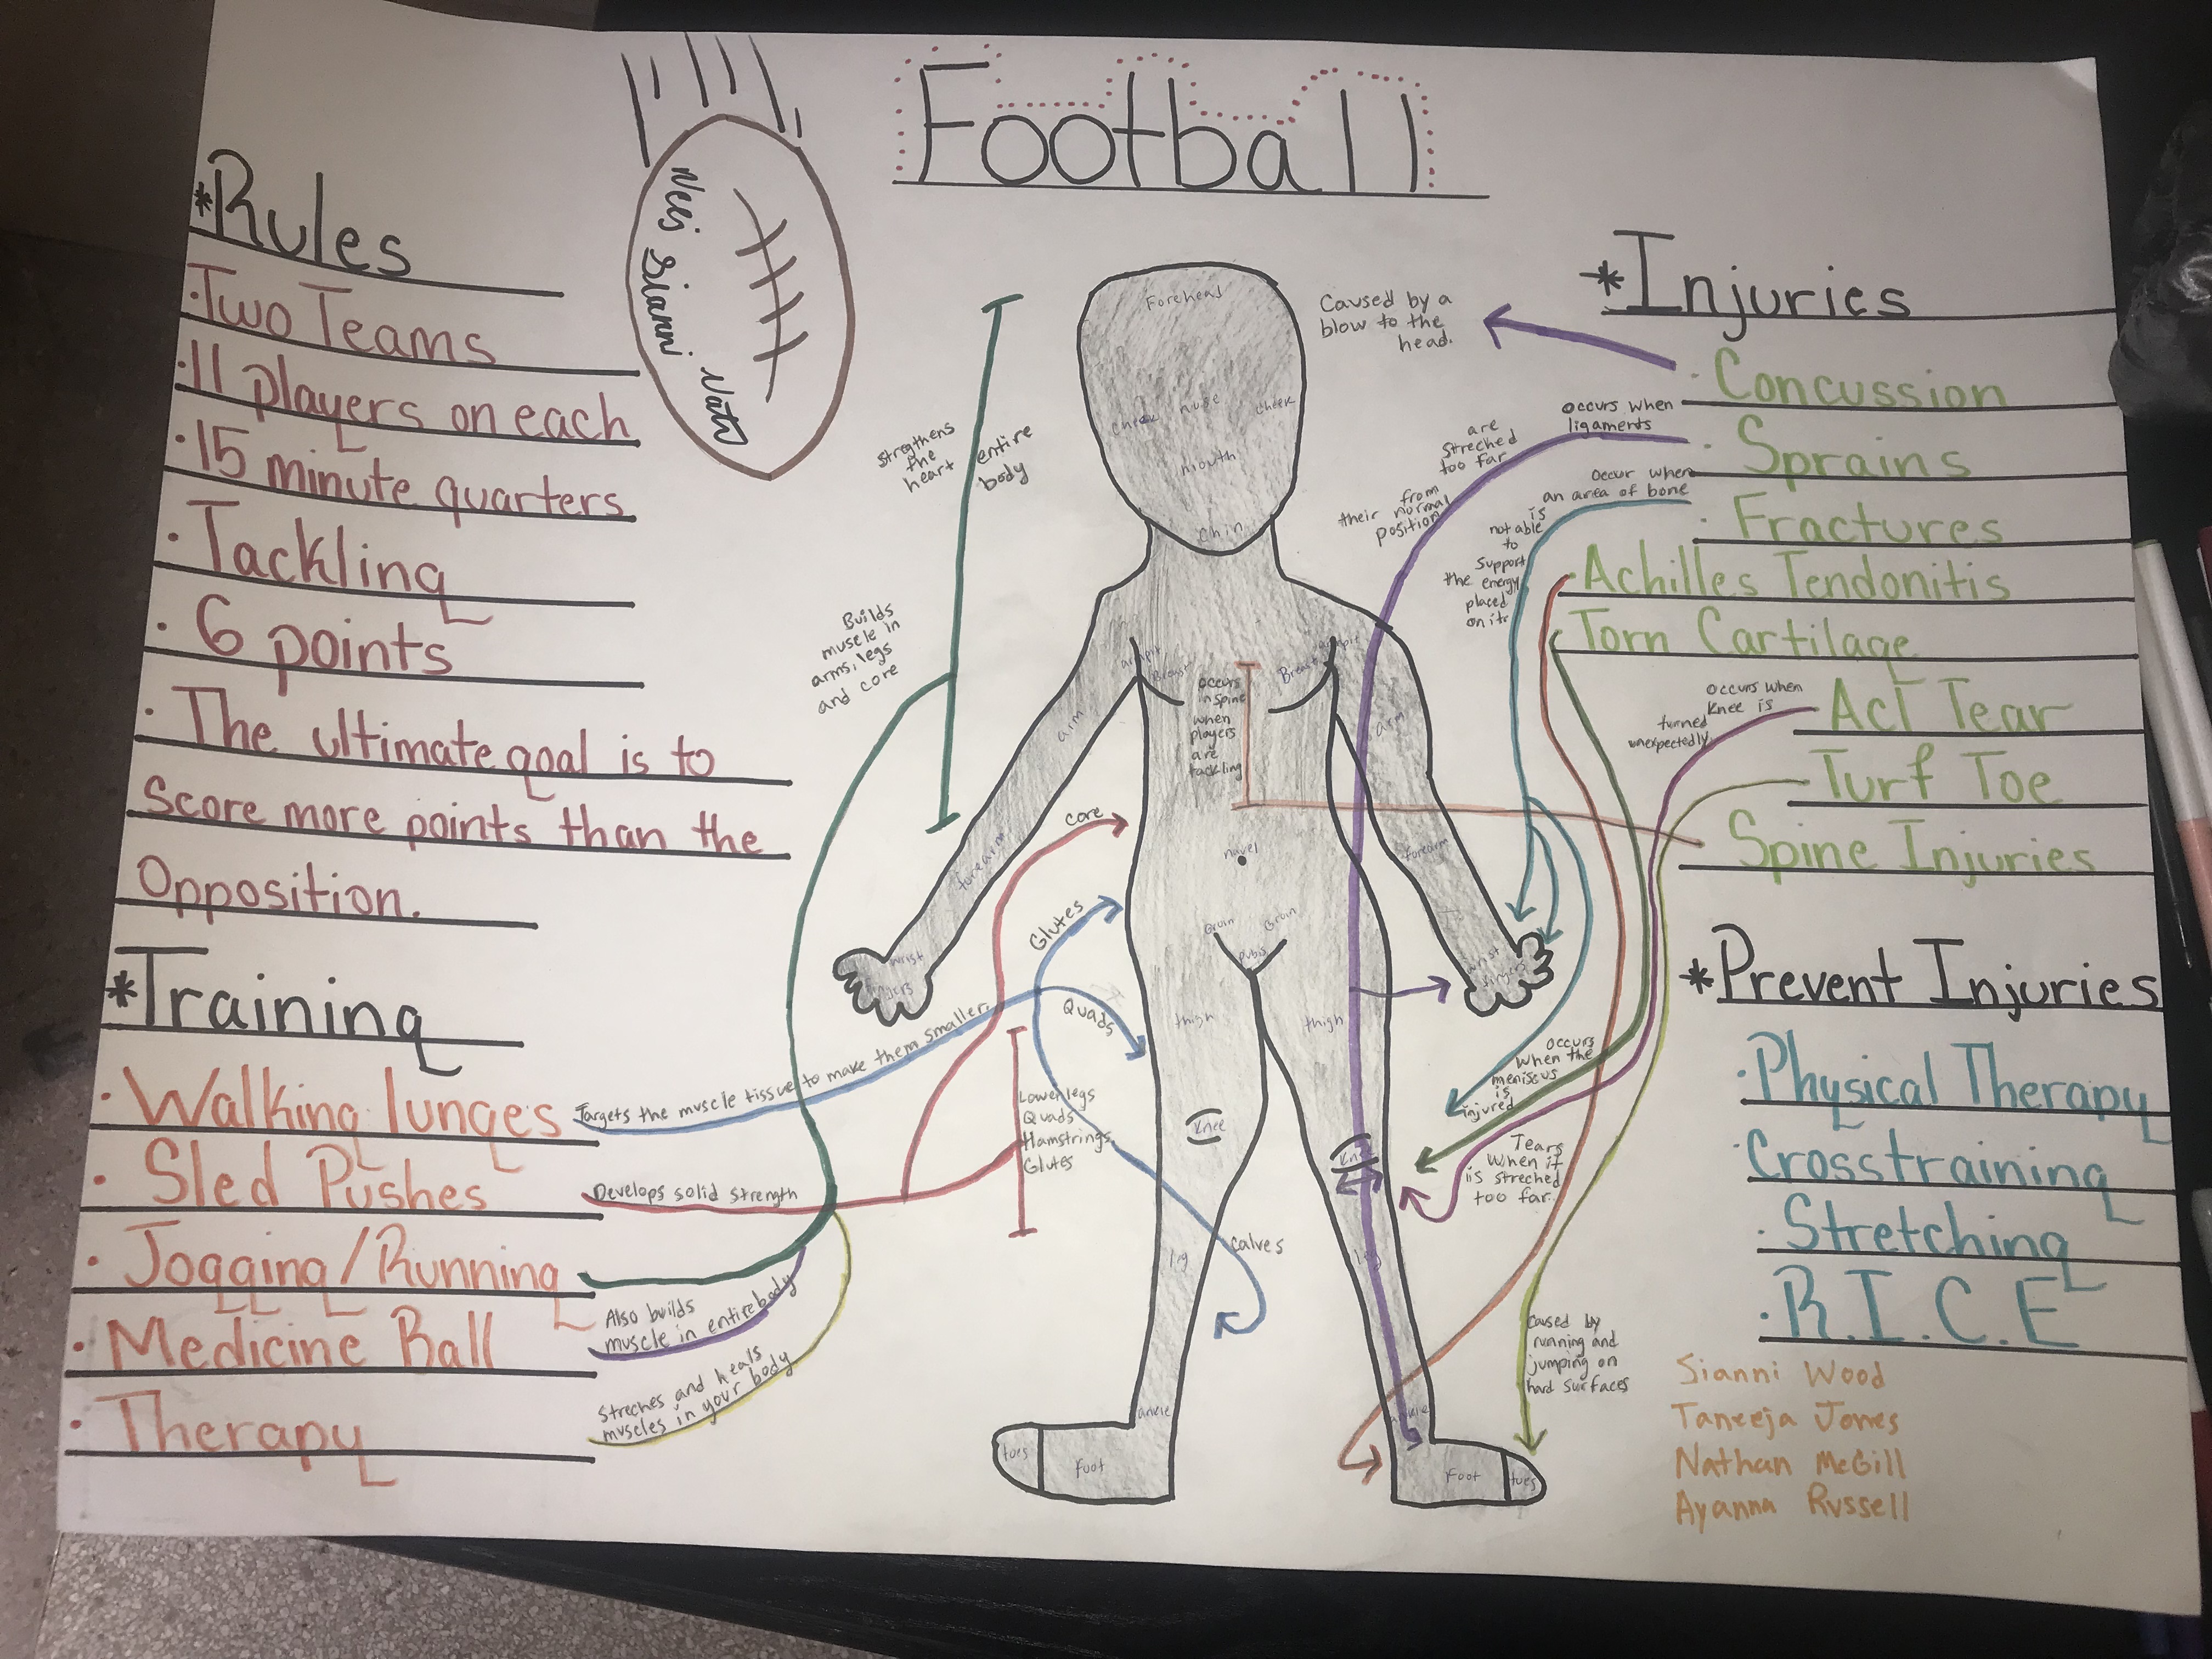 Football
Nees Sianni Nate
*Rules
·Two Teams
·11 players on each
·15 minute quarters
·Tackling
·6 points
·The ultimate goal is to
Score more points than the
Opposition.
*Training
·Walking lunges
·Sled Pushes
·Jogging/Running
·Medicine Ball
·Therapy
Targets the muscle tissue to make them smaller.
Glutes
Quads
calves
Develops solid strength
core
Lower legs
Quads
Hamstrings
Glutes
Also builds
muscle in entire body
Streches and heals
muscles in your body
Builds
muscle in
arms, legs
and core
stregthens
the
heart
entire
body
Forehead
cheek nose cheek
mouth
chin
armpit
Breast
Breast
armpit
arm
arm
occurs
in spine
when
players
are
tackling
forearm
navel
forearm
wrist
fingers
Groin Groin
pubis
wrist
fingers
thigh
thigh
Knee
Knee
leg
leg
ankle
ankle
toes
foot
foot
toes
*Injuries
·Concussion
·Sprains
·Fractures
·Achilles Tendonitis
·Torn Cartilage
·Acl Tear
·Turf Toe
·Spine Injuries
Caused by a
blow to the
head.
occurs when
ligaments
are
streched
too far
from
their normal
position
occur when
an area of bone
is
not able
to
support
the energy
placed
on it
occurs when
knee is
turned
unexpectedly
occurs
when the
meniscus
is
injured
Tears
when it
is streched
too far.
caused by
running and
jumping on
hard surfaces
*Prevent Injuries
·Physical Therapy
·Crosstraining
·Stretching
·R.I.C.E
Sianni Wood
Taneeja Jones
Nathan McGill
Ayanna Russell